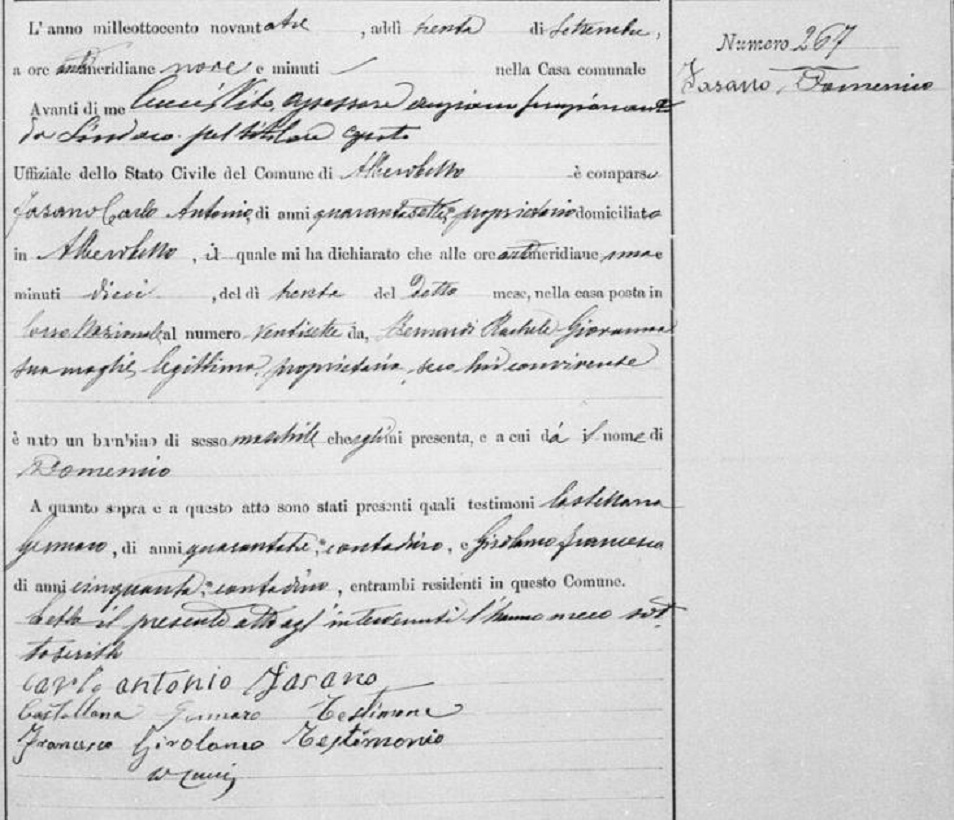 L'anno milleottocento novantatre, addì trenta di Settembre,
a ore antimeridiane nove e minuti nella Casa comunale
Avanti di me Cucci Vito, assessore anziano funzionante
da Sindaco pel titolare
Uffiziale dello Stato Civile del Comune di Alberobello è comparso
Fasano Carlo Antonio, di anni quarantasette, proprietario domiciliato
in Alberobello, il quale mi ha dichiarato che alle ore antimeridiane una e
minuti dieci, del dì trenta del detto mese, nella casa posta in
Corso Nazionale al numero ventisette da, Rachele Giovanna
sua moglie legittima, proprietaria, seco lui convivente
è nato un bambino di sesso maschile che egli mi presenta, e a cui dá il nome di
Domenico
A quanto sopra e a questo atto sono stati presenti quali testimoni Castellana
Gennaro, di anni quarantatre, contadino, e Girolamo Francesco
di anni cinquanta, contadino, entrambi residenti in questo Comune.
Letto il presente atto agl'intervenuti l'hanno meco sot
toscritto
Carlo antonio Fasano
Castellana Gennaro Testimone
Francesco Girolamo Testimonio
V Cucci
Numero 267
Fasano Domenico